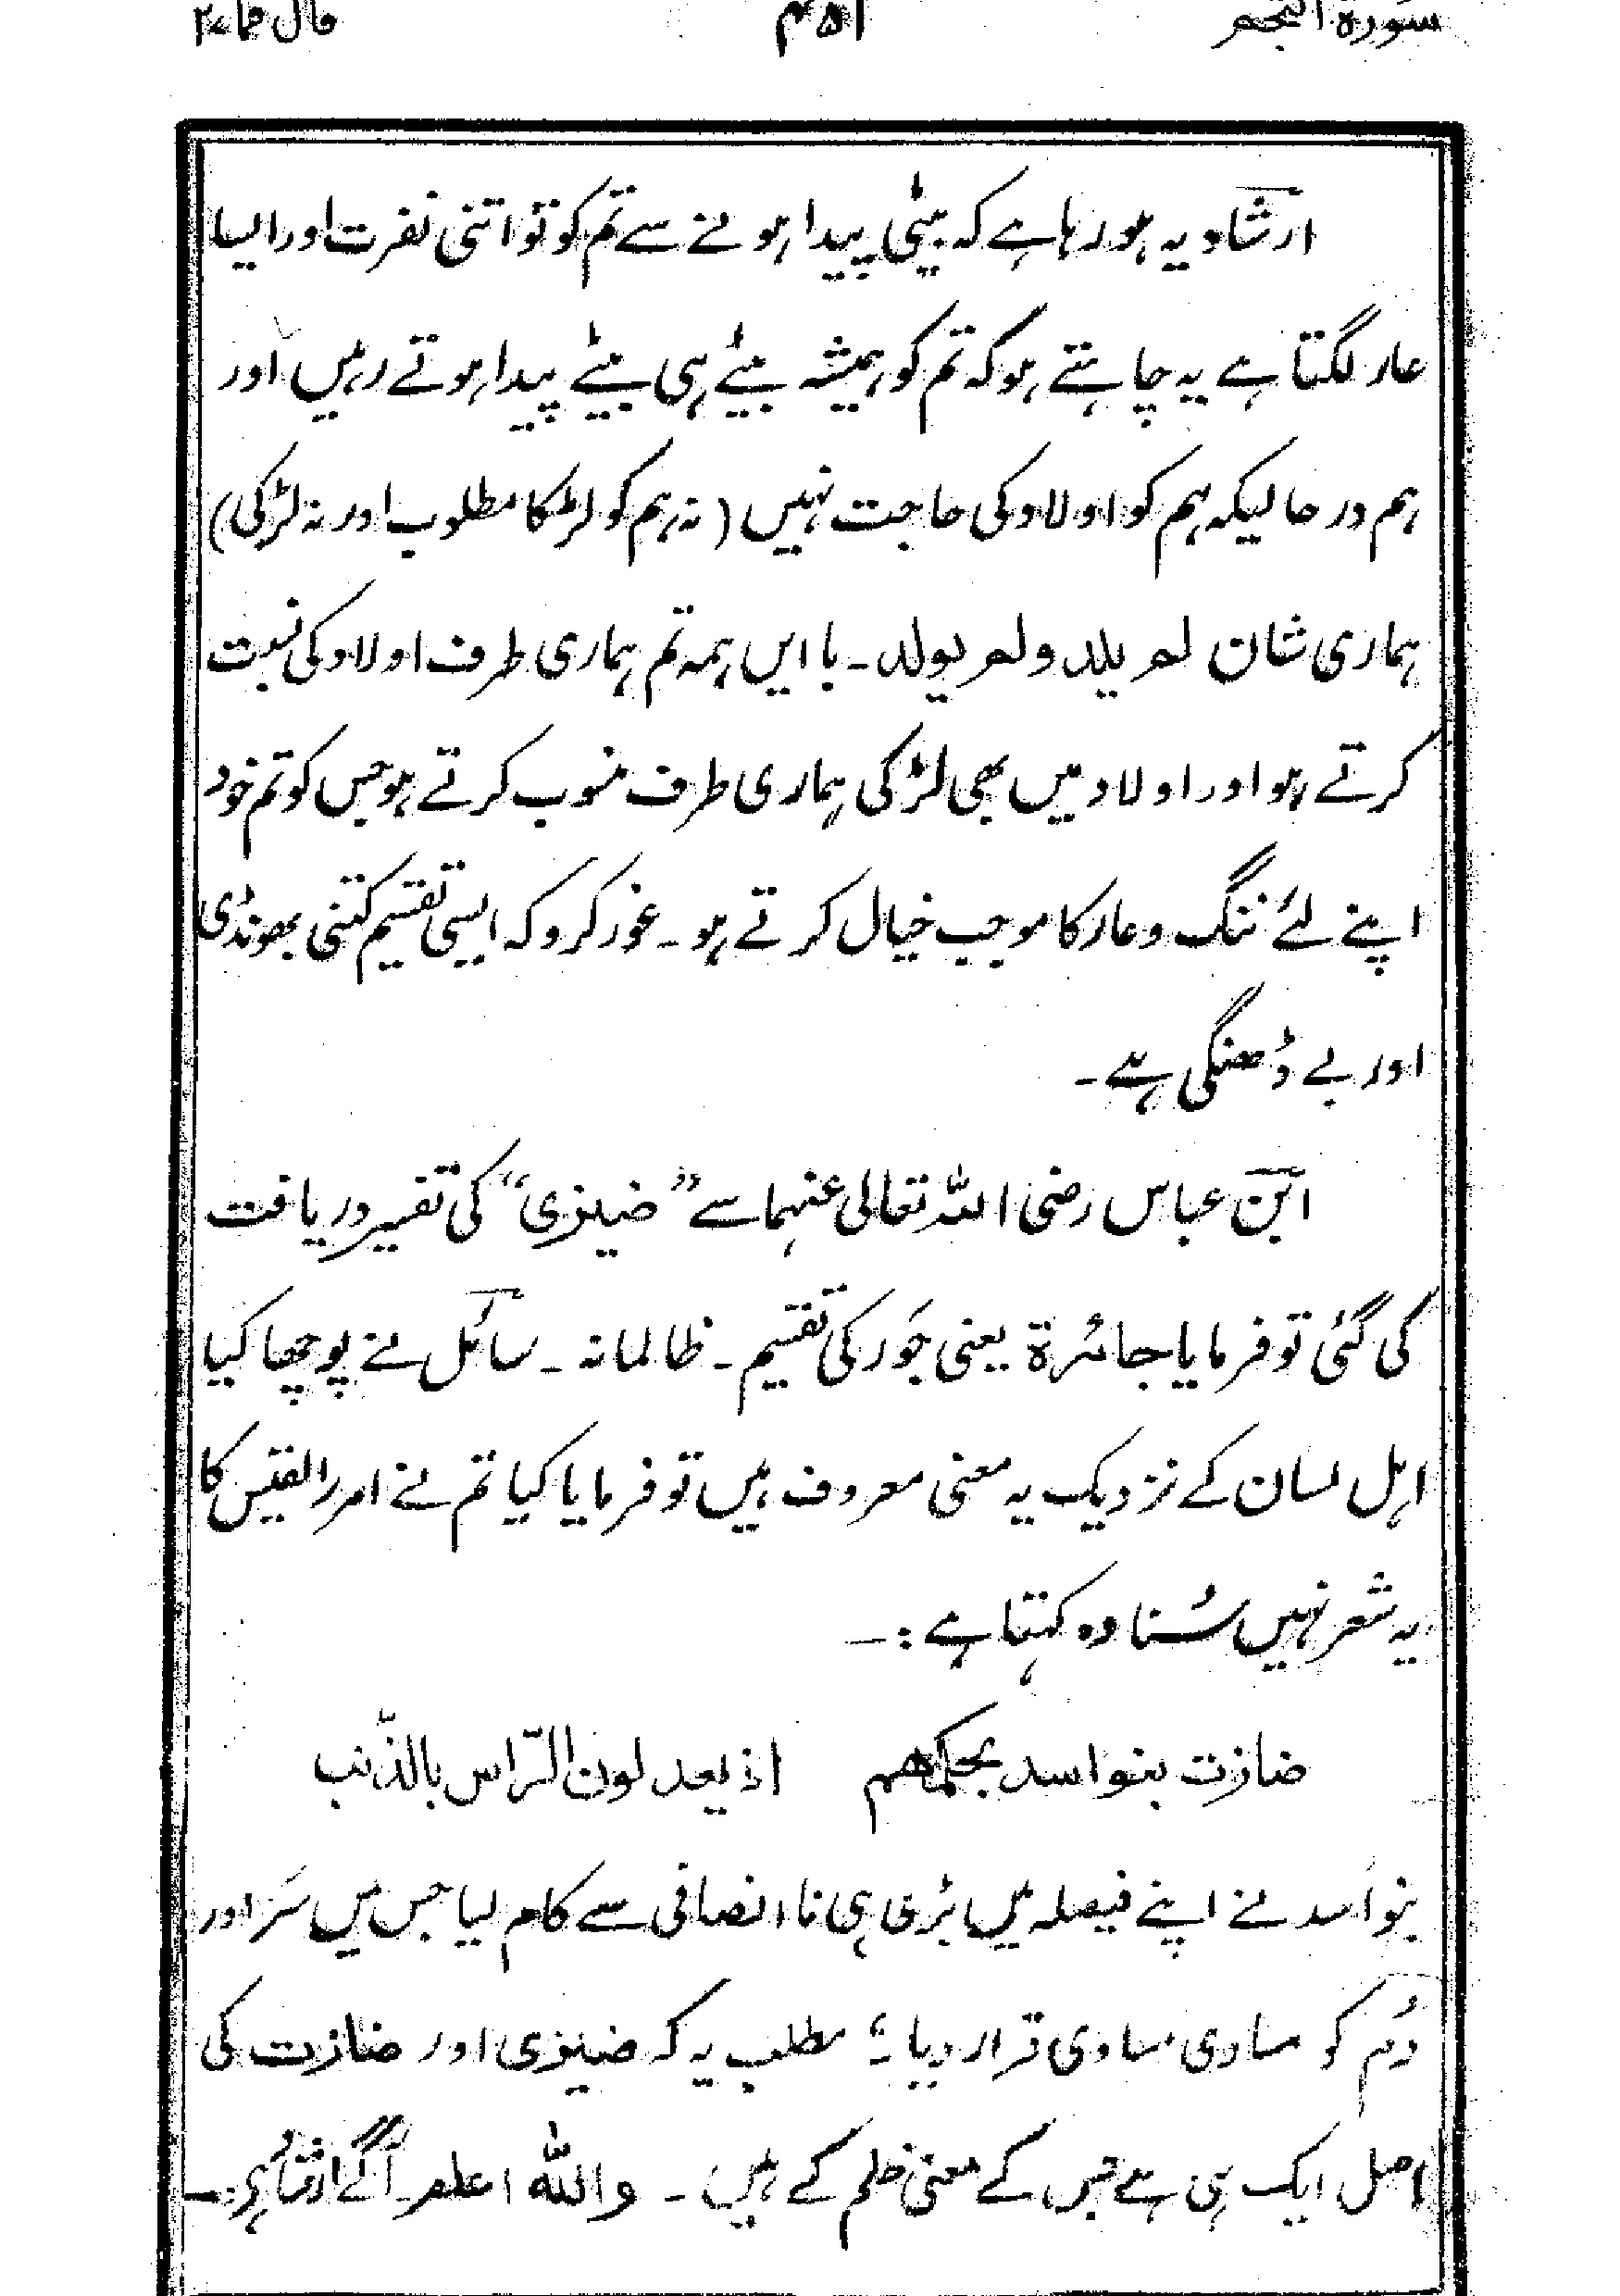 سورۃ النجم ۴۵۱ قال فما ۲۷
ارشاد یہ ہو رہا ہے کہ بیٹی پیدا ہونے سے تم کو تو اتنی نفرت اور ایسا
عار لگتا ہے یہ چاہتے ہو کہ تم کو ہمیشہ بیٹے ہی بیٹے پیدا ہوتے رہیں اور
ہم در حالیکہ ہم کو اولاد کی حاجت نہیں (نہ ہم کو لڑکا مطلوب اور نہ لڑکی)
ہماری شان لم یلد ولم یولد۔ با ایں ہمہ تم ہماری طرف اولاد کی نسبت
کرتے ہو اور اولاد میں بھی لڑکی ہماری طرف منسوب کرتے ہو جس کو تم خود
اپنے لئے ننگ و عار کا موجب خیال کرتے ہو۔ غور کرو کہ ایسی تقسیم کتنی بھونڈی
اور بے ڈھنگی ہے۔
ابن عباس رضی اللہ تعالی عنہما سے ”ضیزی“ کی تفسیر دریافت
کی گئی تو فرمایا جائرۃ یعنی جَور کی تقسیم۔ ظالمانہ۔ سائل نے پوچھا کیا
اہل لسان کے نزدیک یہ معنی معروف ہیں تو فرمایا کیا تم نے امرالقیس کا
یہ شعر نہیں سُنا وہ کہتا ہے :۔
ضازت بنو اسد بحکمھم اذ یعدلون الرّاس بالذّنب
بنو اَسد نے اپنے فیصلہ میں بڑی ہی نا انصافی سے کام لیا جس میں سَر اور
دُم کو مساوی مساوی قرار دیا ؛ مطلب یہ کہ ضیزی اور ضازت کی
اصل ایک ہی ہے جس کے معنی ظلم کے ہیں۔ واللہ اعلم۔ آگے ارشاد ہے:۔